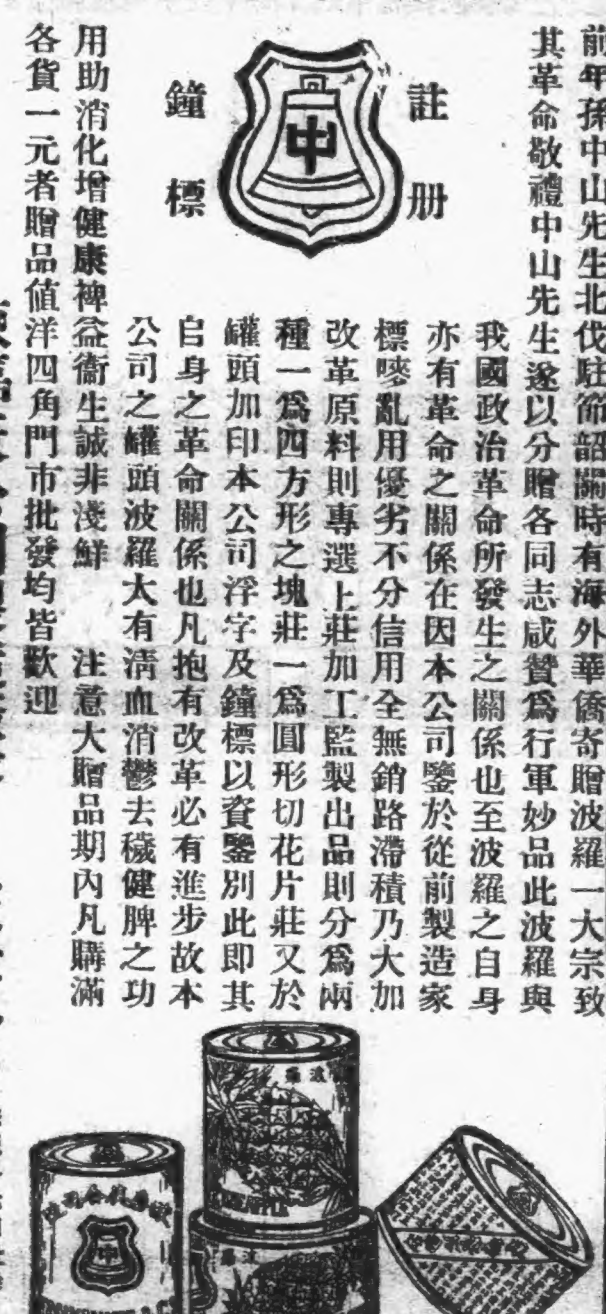 前年孫中山先生北伐駐節韶關時有海外華僑寄贈波羅一大宗致
其革命敬禮中山先生遂以分贈各同志咸贊爲行軍妙品此波羅與
我國政治革命所發生之關係也至波羅之自身
亦有革命之關係在因本公司鑒於從前製造家
標嘜亂用優劣不分信用全無銷路滯積乃大加
改革原料則專選上莊加工監製出品則分爲兩
種一爲四方形之塊莊一爲圓形切花片莊又於
罐頭加印本公司浮字及鐘標以資鑒別此即其
自身之革命關係也凡抱有改革必有進步故本
公司之罐頭波羅大有淸血消鬱去穢健脾之功
用助消化增健康裨益衞生誠非淺鮮 注意大贈品期內凡購滿
各貨一元者贈品値洋四角門市批發均皆歡迎
註册
鐘標
中
波羅
中
波羅